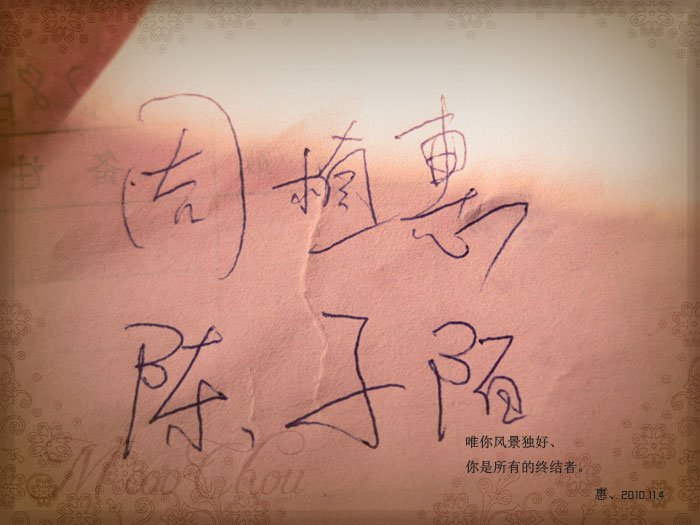 周植惠
陈子陌
唯你风景独好、
你是所有的终结者。
惠、2010.11.4
备注